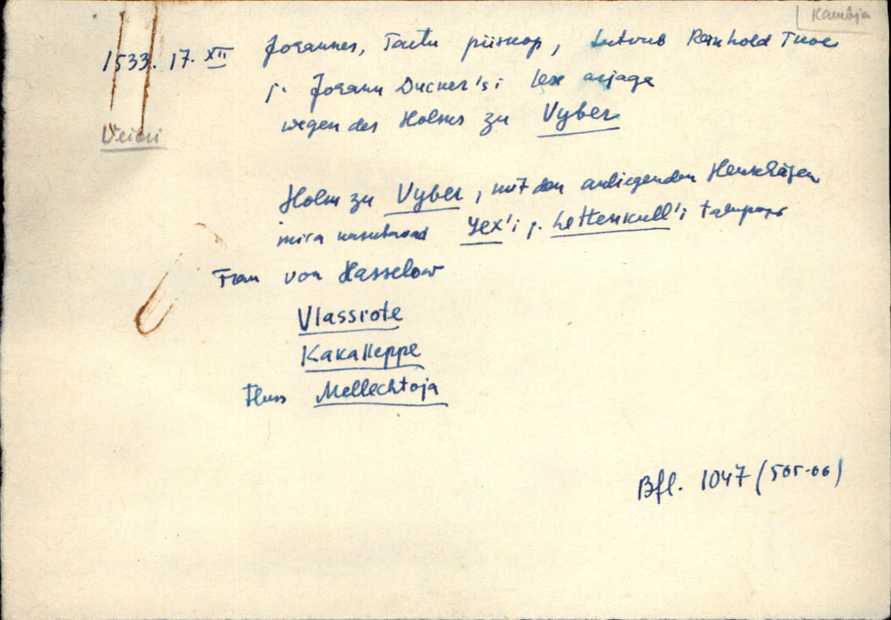 Kambja
1533. 17. XII Johannes, Tartu piiskop, Reinhold Tuve
j. Johann Ducker'si
wegen des Holms zu Vyber
Holm zu Vyber, mit den anliegenden Heuschlägen
mira Yex'i j. Lettenkull'i
Frau von Hasselow
Vlassrote
Kakalleppe
Fluss Mellechtoja
Bfl. 1047 (505-06)